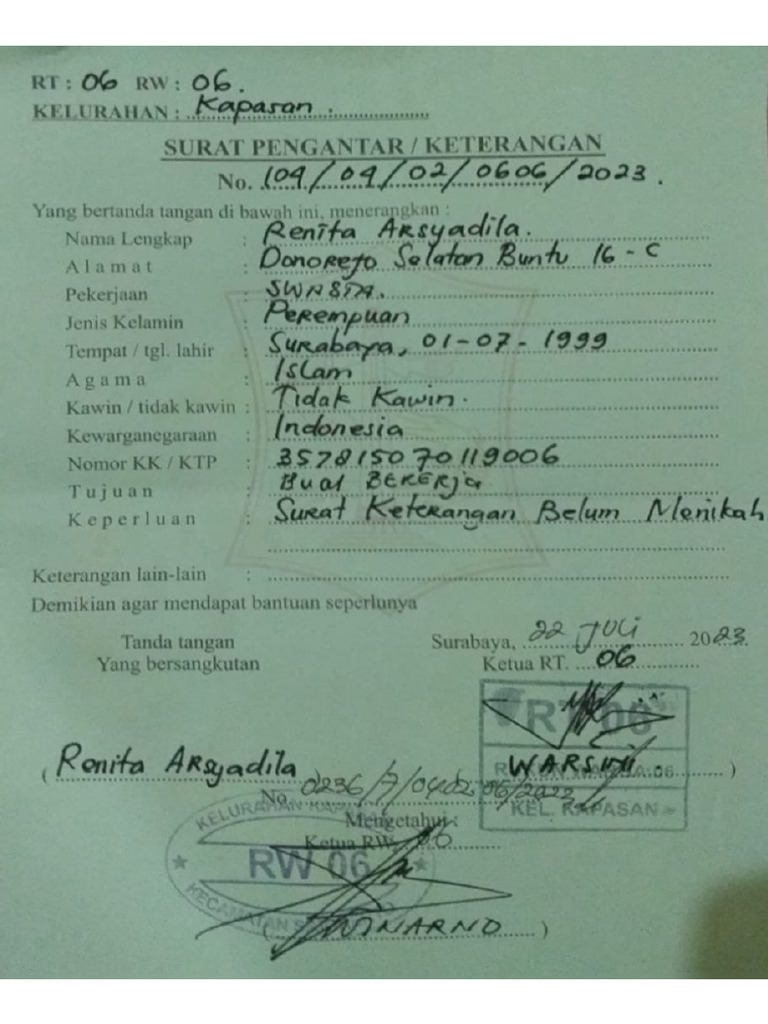 RT : 06 RW : 06.
KELURAHAN : Kapasan
SURAT PENGANTAR / KETERANGAN
No. 104/04/02/0606/2023.
Yang bertanda tangan di bawah ini, menerangkan :
Nama Lengkap : Renita Arsyadila.
Alamat : Donorejo Selatan Buntu 16 - C
Pekerjaan : SWASTA.
Jenis Kelamin : Perempuan
Tempat / tgl. lahir : Surabaya, 01-07-1999
Agama : Islam
Kawin / tidak kawin : Tidak Kawin.
Kewarganegaraan : Indonesia
Nomor KK / KTP : 357815070119006
Tujuan : Buat BEKERja
Keperluan : Surat Keterangan Belum Menikah
Keterangan lain-lain :
Demikian agar mendapat bantuan seperlunya
Tanda tangan
Yang bersangkutan
Surabaya, 22 JULI 2023.
Ketua RT. 06
RT 06
(Renita Arsyadila)
WARSINI )
KEL. KAPASAN
No. 0236/7/04.02.06/2022
Mengetahui :
Ketua RW. 06
KELURAHAN KAPASAN
RW 06
KECAMATAN
( WINARNO )